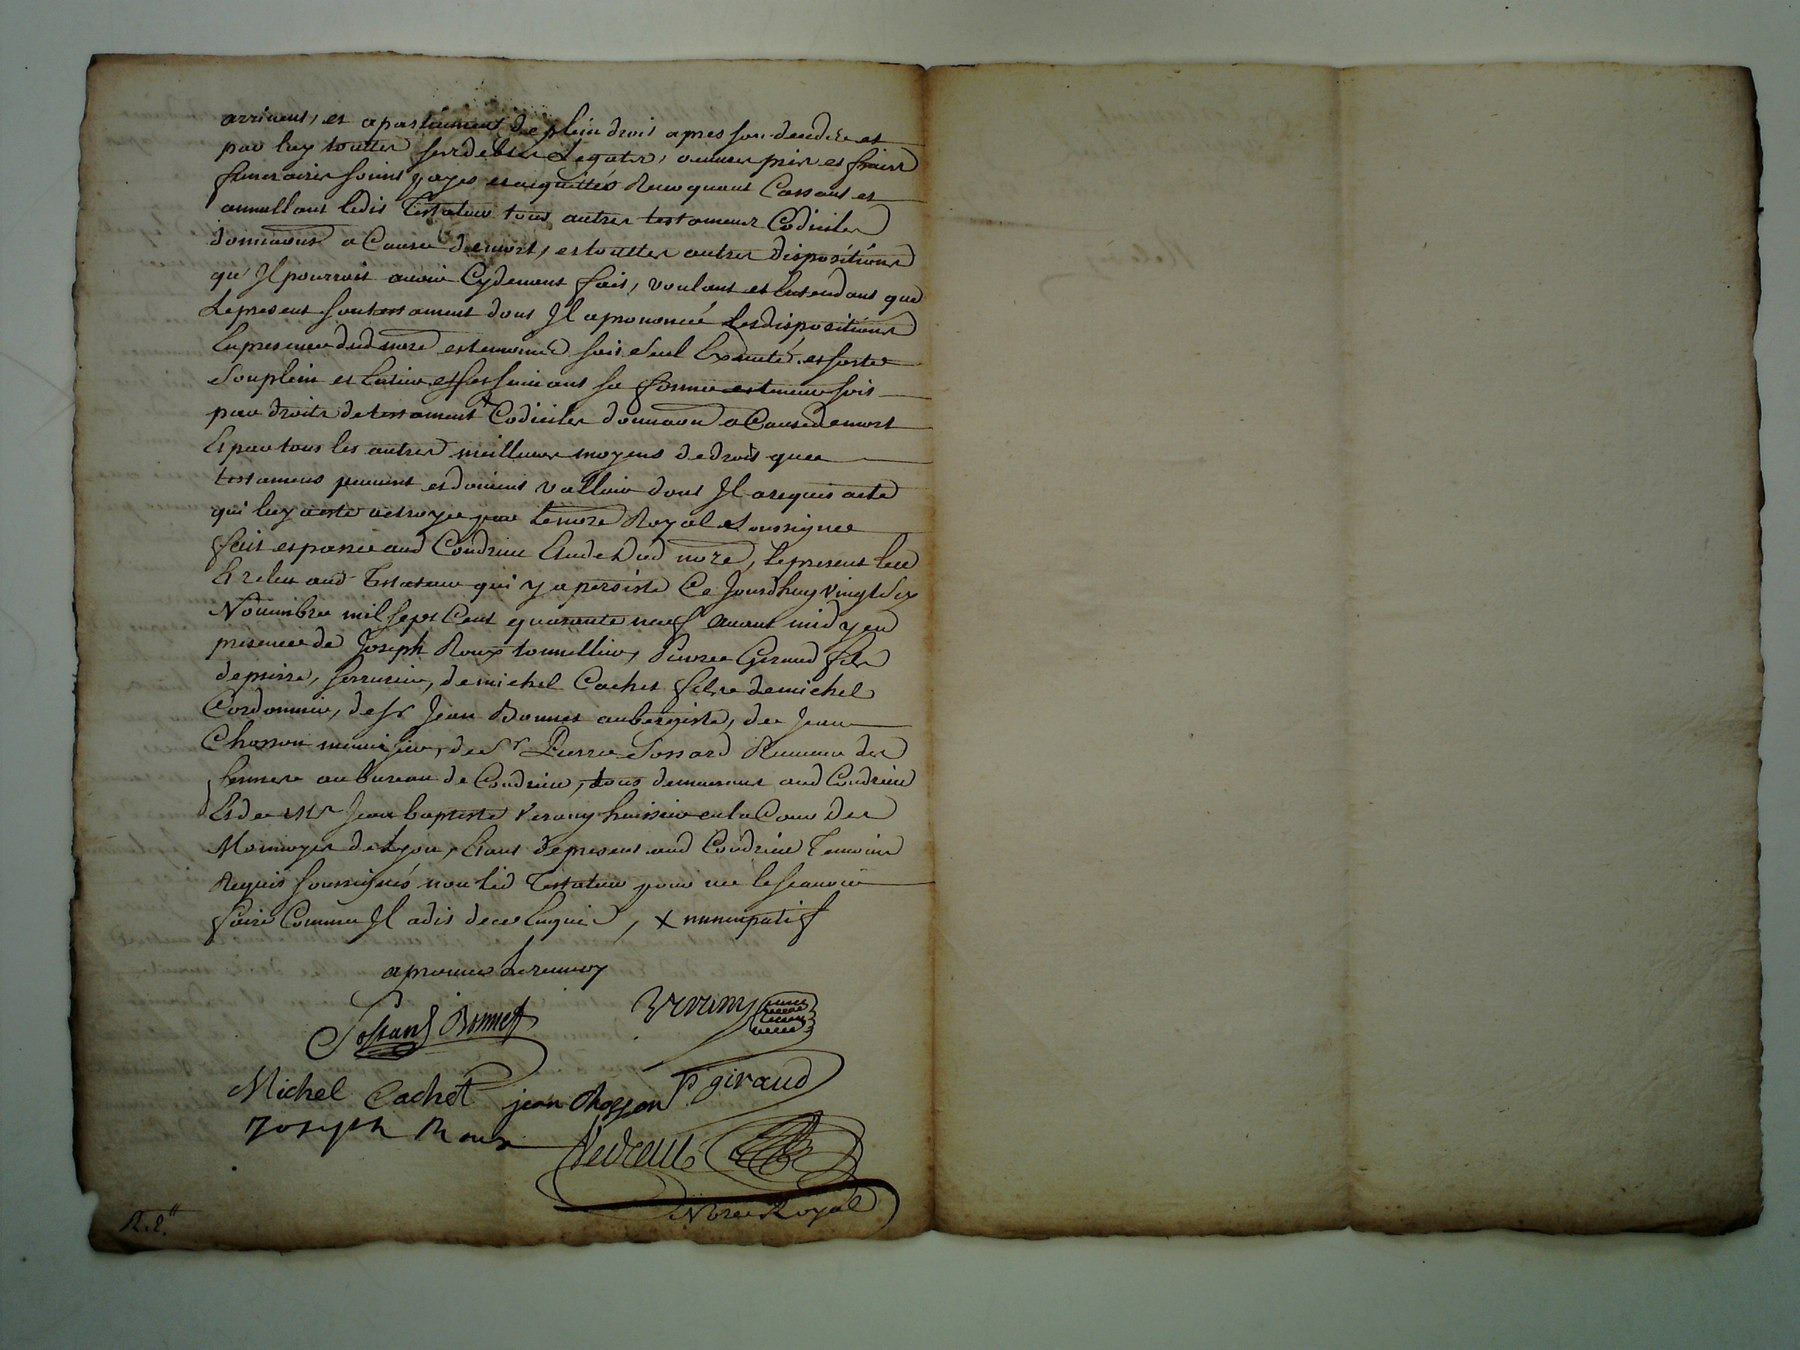 arrivent, et apartiennent de plein droit apres son deceds et
par luy touttes ses debtes Legats, œuvres pies et fraix
funeraires soint payés et acquittés Revoquant Cassant et
annullant ledit Testateur tous autres testaments Codiciles
donnaons a Cause de mort, et touttes autres dispositions
qu'Il pourroit avoir Cydevant fait, voulant et Entendant que
Le present son testament dont Il a prononcé les dispositions
En presence dud nore et temoins soit seul Executé et sorte
Son plein et Entier effet suivant sa forme et teneur soit
par droits de testament x Codiciles donnaon a Cause de mort
Et par tous les autres meilleurs moyens de droit que
testamens peuvent et doivent valloir dont Il a requis acte
qui luy a esté octroyé par le nore Royal Soussigné
fait et passé aud Condrieu Etude dud nore, le present leu
Et releu aud Testateur qui y a persisté Ce Jourdhuy vingt Six
Novembre mil sept Cent quarante neuf avant midy en
presence de Joseph Roux tonnellier, Pierre Geraud fils
de pierre, serrurier, de michel Cachet fils de michel
Cordonnier, de sr Jean Bonnet aubergiste, de Jean
Chosson menuisier, de Sr Pierre Sossard Receveur des
fermes au bureau de Condrieu, tous demeurant aud Condrieu
Et de Mr Jean baptiste Verany huissier en la Cour des
Monnoyes de Lyon, Etant de present aud Condrieu Temoins
Requis soussignés non led Testateur pour ne le scavoir
faire Comme Il a dit de ce Enquis, x nuncupatif
aprouvé le renvoy
Bonnet
Verany
Michel Cachet jean Chosson P giraud
Joseph Roux
Nore Royal